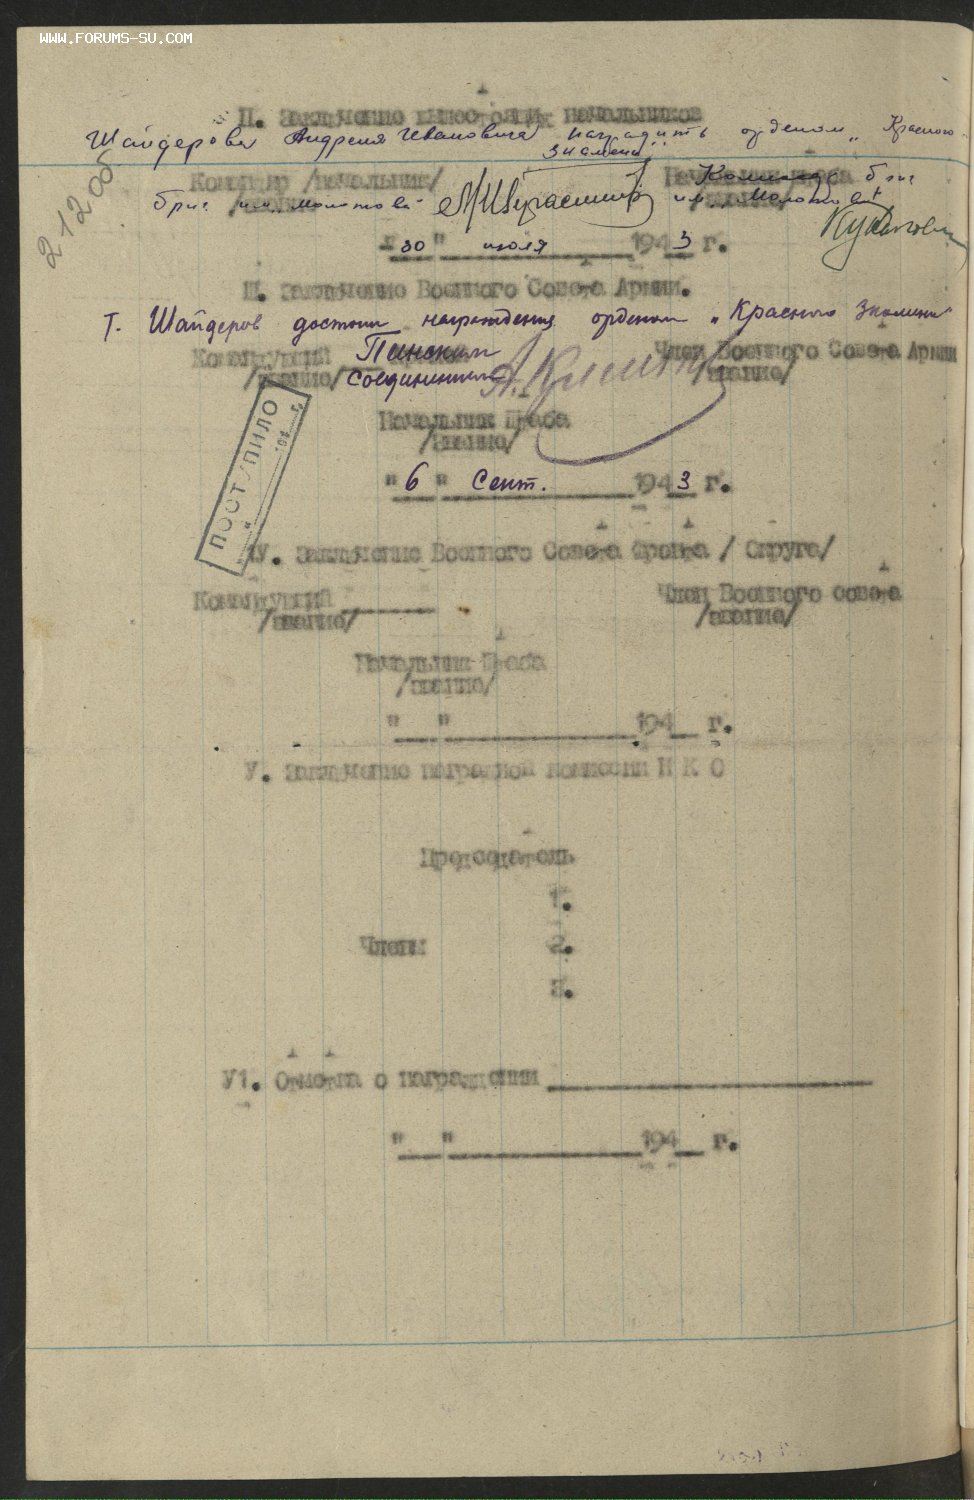 WWW.FORUMS-SU.COM
П. Заключение вышестоящих начальников
Шайдерова Андрея Ивановича наградить орденом „Красного
Знамени"
21200
Командир /начальник/
/звание/
бриг им. „Молотова"
Комиссар бриг
им. „Молотова"
" 30 " июля 1943 г.
Ш. Заключение Военного Совета Армии.
Т. Шайдеров достоин награждения орденом „Красного Знамени"
Командующий Пинским
/звание/ соединением
Член Военного Совета Армии
/звание/
Начальник Штаба
/звание/
ПОСТУПИЛО
" 6 " Сент. 1943 г.
1У. Заключение Военного Совета Фронта / Округа/
Командующий
/звание/
Член Военного совета
/звание/
Начальник Штаба
/звание/
" " 194 г.
У. Заключение наградной комиссии Н К О
Председатель
1.
Члены 2.
3.
У1. Отметка о награждении
" " 194 г.